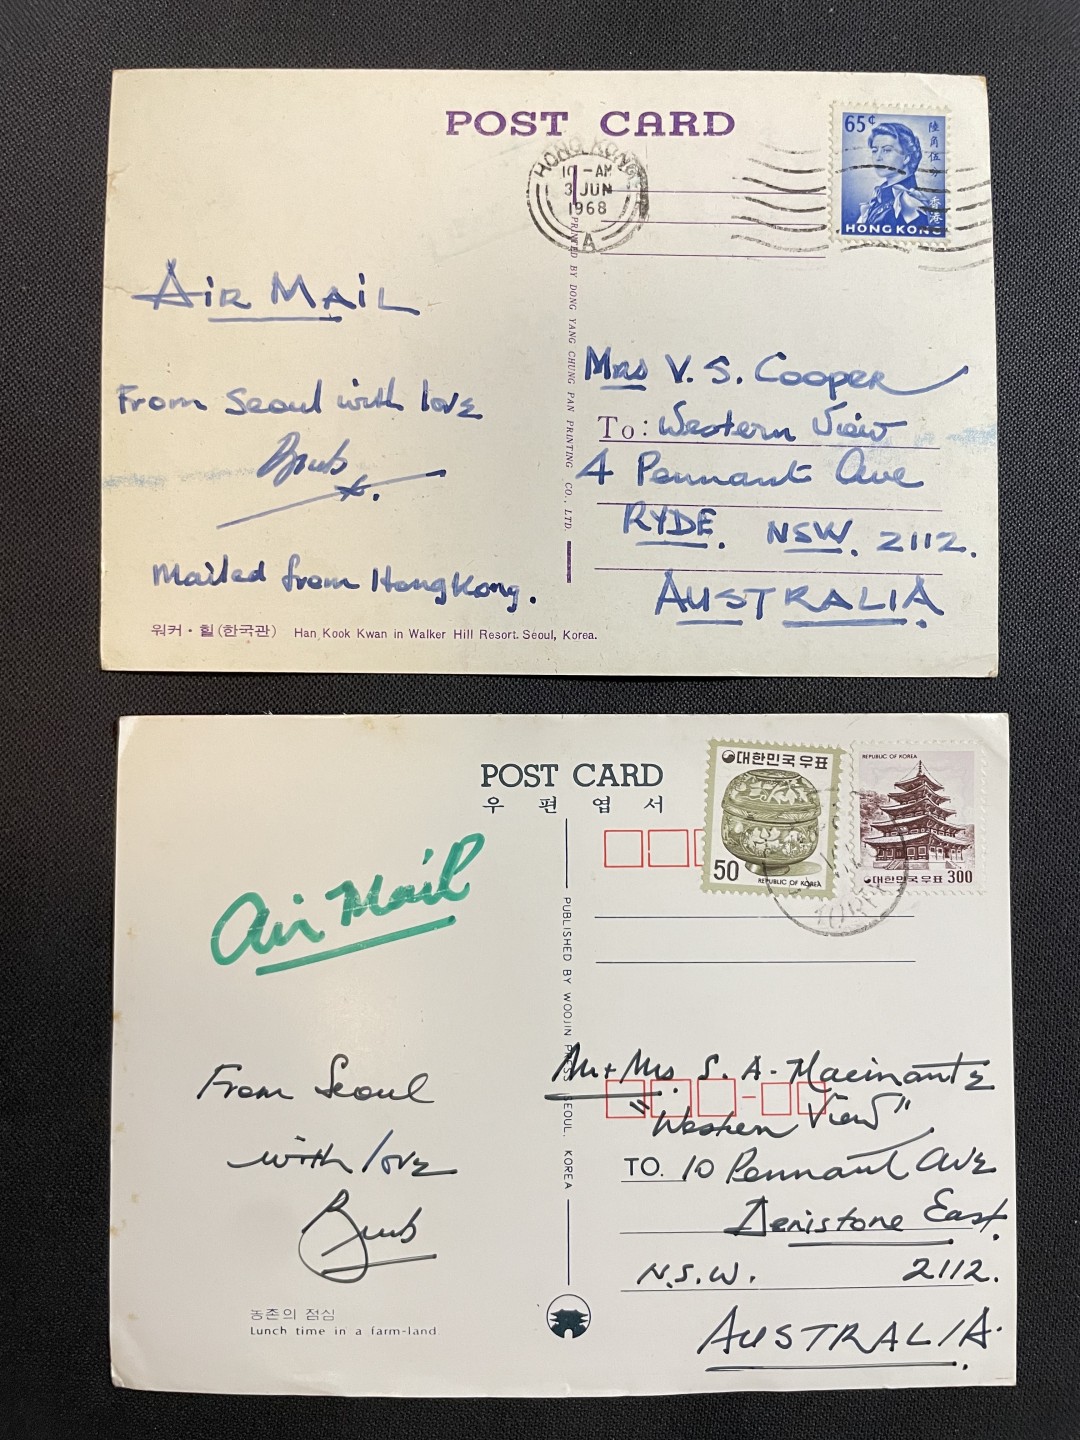 POST CARD
HONG KONG
10 - AM
3 JUN
1968
A
65¢
陸角伍分
香港
HONG KONG
AIR MAIL
From Seoul with love
Mailed from Hong Kong.
워커·힐(한국관) Han Kook Kwan in Walker Hill Resort. Seoul, Korea.
PRINTED BY DONG YANG CHUNG PAN PRINTING CO., LTD.
Mrs V. S. Cooper
To: Western View
4 Pennant Ave
RYDE. NSW. 2112.
AUSTRALIA.
POST CARD
우편엽서
대한민국우표
50
REPUBLIC OF KOREA
REPUBLIC OF KOREA
대한민국우표 300
Air Mail
From Seoul
with love
농촌의 점심
Lunch time in a farm-land
PUBLISHED BY WOOJIN PRESS, SEOUL, KOREA
Mr + Mrs. S. A. Macinante
"Western View"
TO. 10 Pennant Ave
Denistone East.
N.S.W. 2112.
AUSTRALIA.